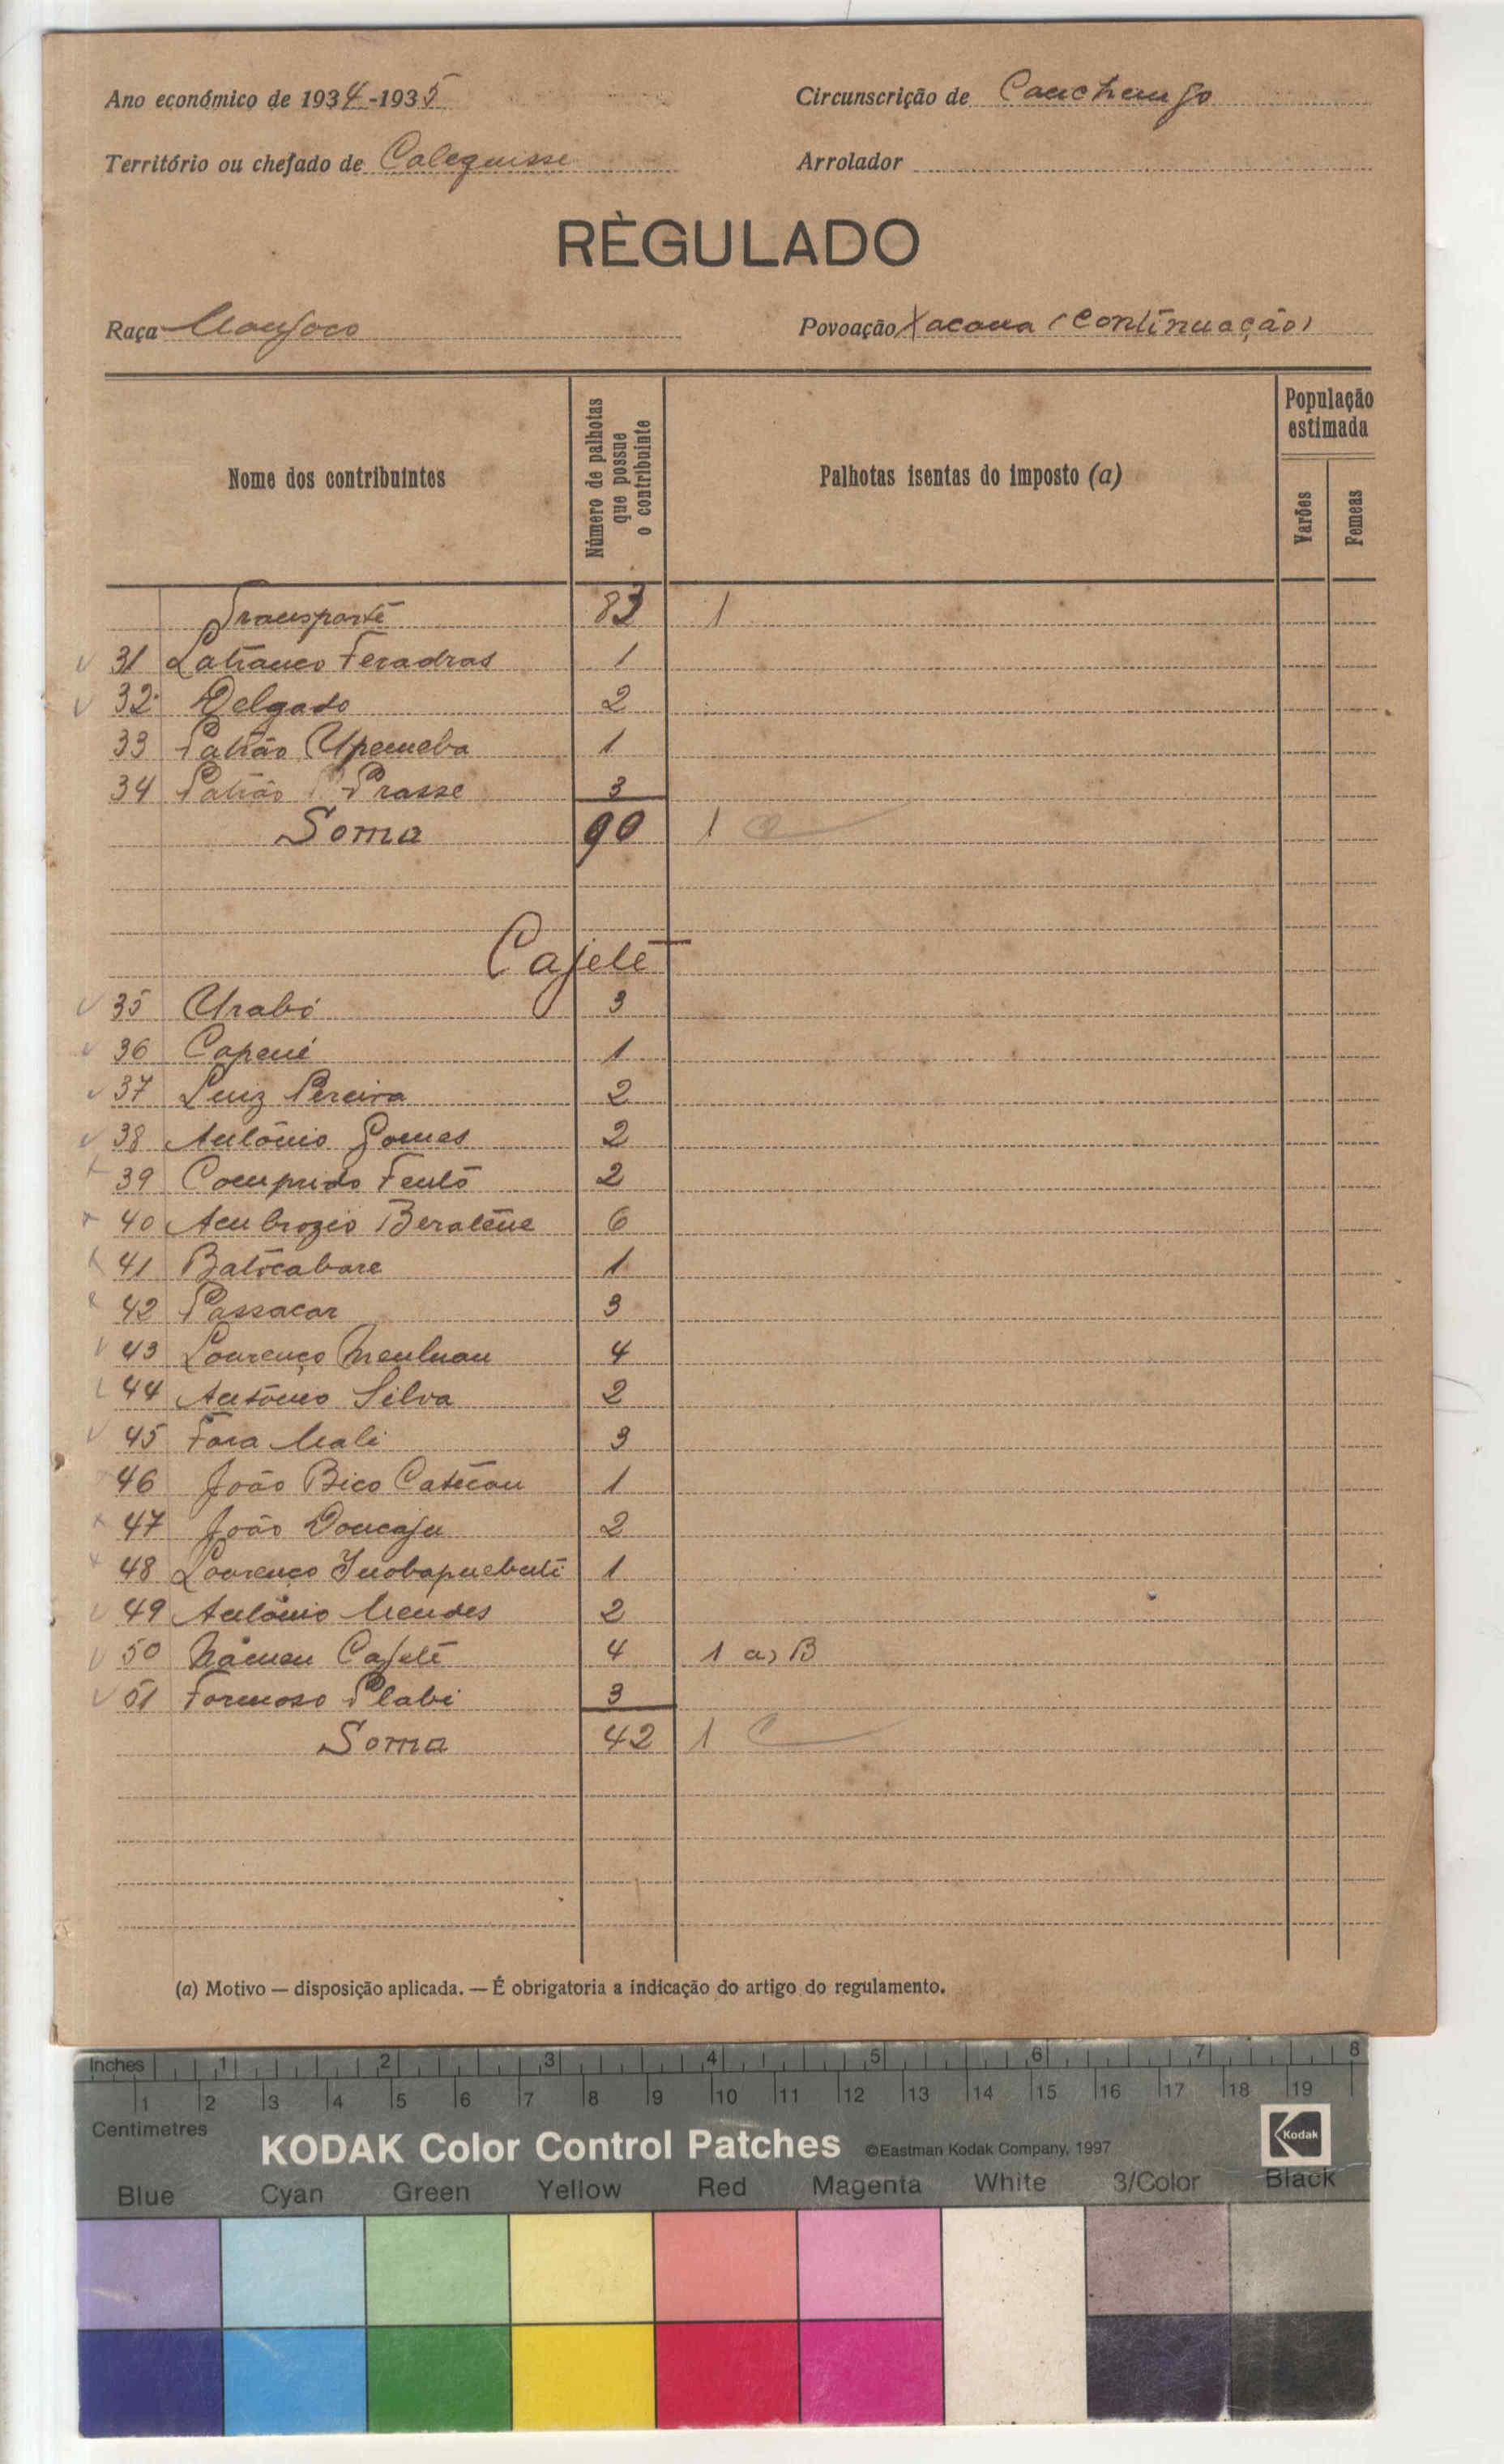 Ano económico de 1934-1935
Circunscrição de Canchungo
Território ou chefado de Calequisse
Arrolador
RÈGULADO
Raça Manjaco
Povoação Xacana (continuação)
Nome dos contribuintes
Número de palhotas que possue o contribuinte
Palhotas isentas do imposto (a)
População estimada
Varões
Femeas
Transporte 83 1
31 Feradras 1
32 Delgado 2
33 Patrão Upemeba 1
34 Patrão Prasse 3
Soma 90 1
Cajete
35 Urabó 3
36 Capené 1
37 Luiz Pereira 2
38 António Gomes 2
39 Comprido Fentó 2
40 Ambrozio Beraténe 6
41 Batícabare 1
42 Passacar 3
43 Lourenço 4
44 António Silva 2
45 Fara Mali 3
46 João Bico Catécan 1
47 João Doncaju 2
48 Lourenço 1
49 António Mendes 2
50 Námen Cajeté 4 1 a) B
51 Formoso Plabi 3
Soma 42 1
(a) Motivo — disposição aplicada. — É obrigatoria a indicação do artigo do regulamento.
Inches 1 2 3 4 5 6 7 8
1 2 3 4 5 6 7 8 9 10 11 12 13 14 15 16 17 18 19
Centimetres
KODAK Color Control Patches ©Eastman Kodak Company, 1997 Kodak
Blue Cyan Green Yellow Red Magenta White 3/Color Black